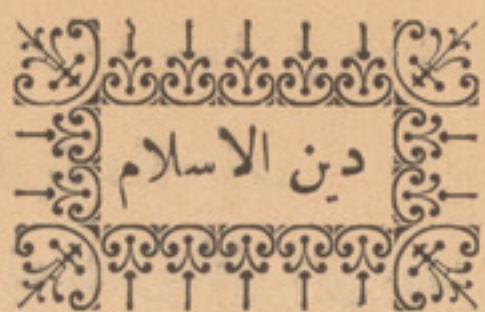 دين الاسلام